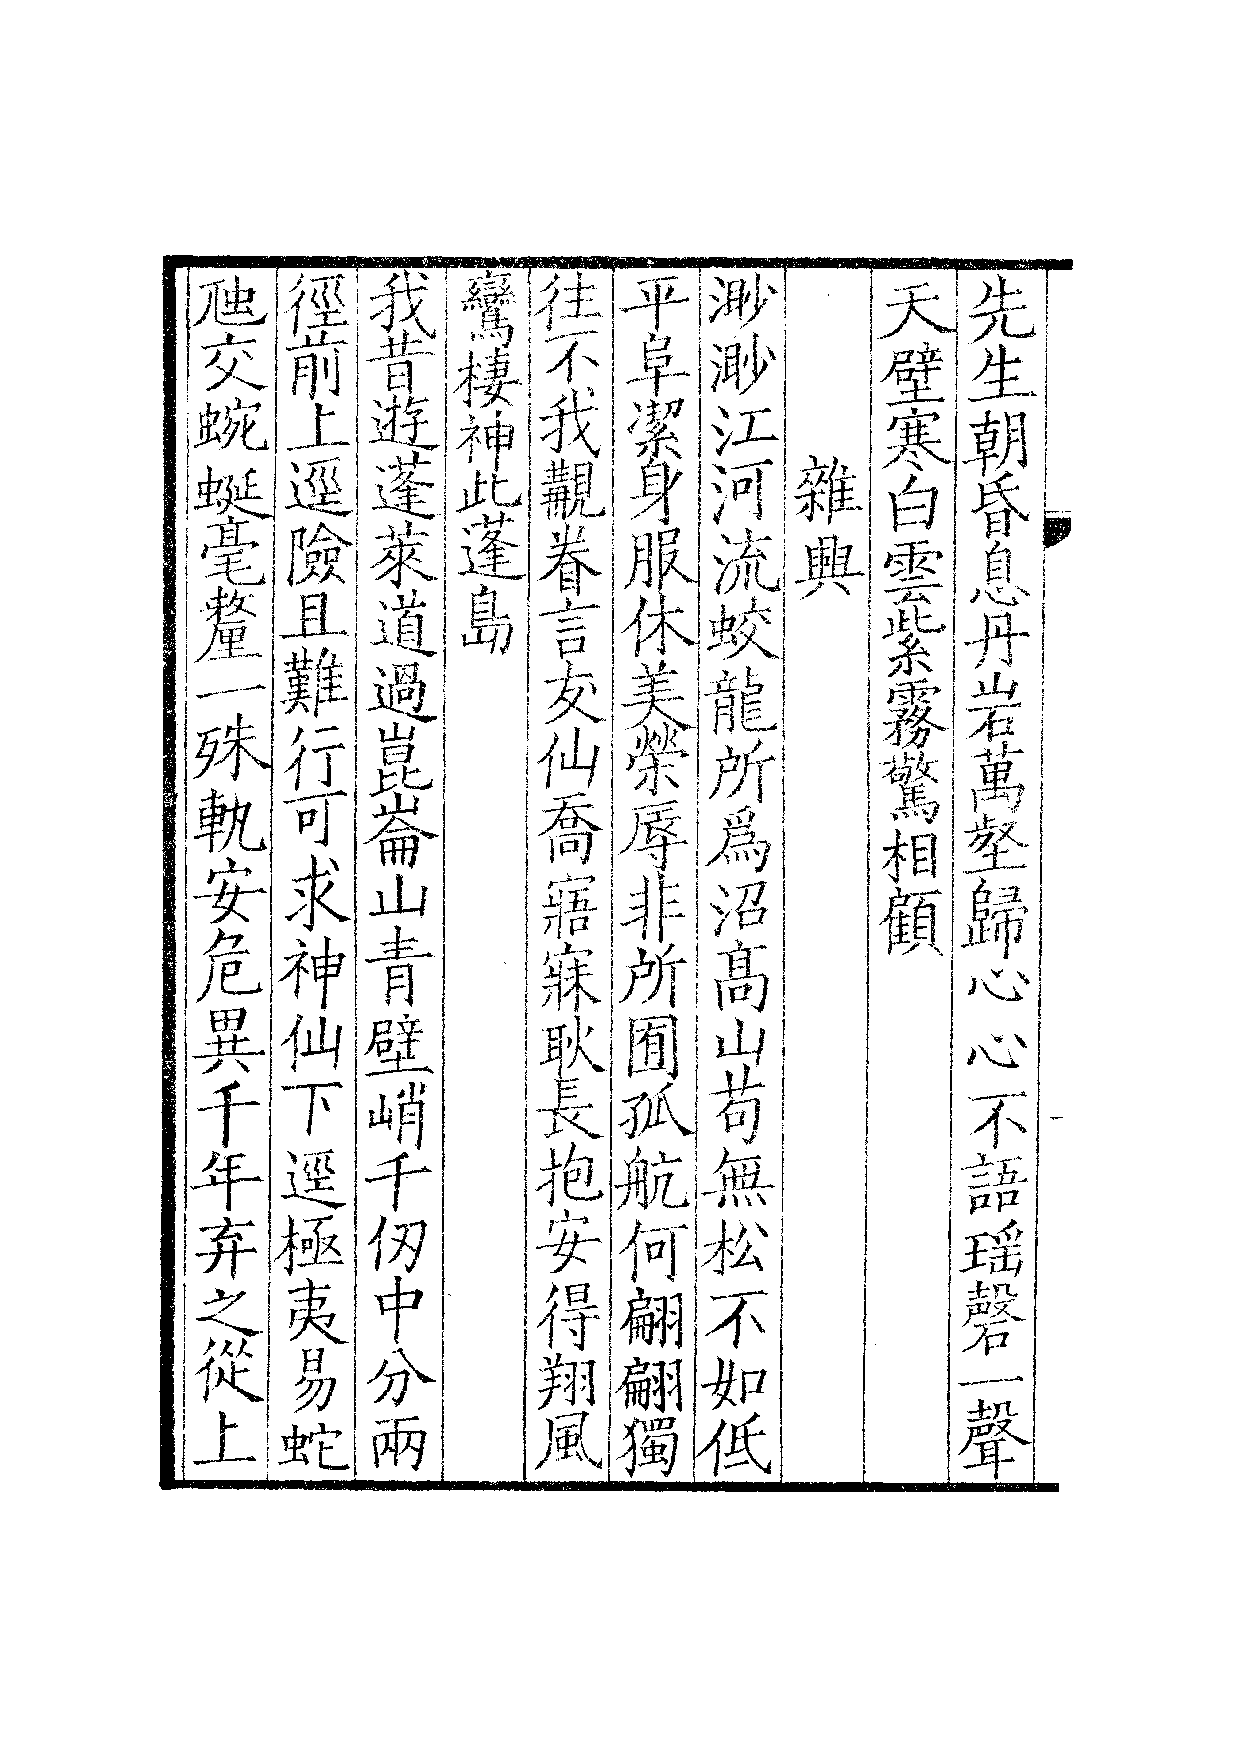 先生朝昏息丹岩萬壑歸心心不語瑶磬一聲
天壁寒白雲紫霧驚相顧
雜興
渺渺江河流蛟龍所爲沼髙山苟無松不如低
平阜潔身服休美榮辱非所囿孤航何翩翩獨
往不我覯眷言友仙喬寤寐耿長抱安得翔風
鸞棲神此蓬島
我昔遊蓬萊道過崑崙山青壁峭千仭中分兩
徑前上逕險且難行可求神仙下逕極夷易蛇
虺交蜿蜒毫釐一殊軌安危異千年弃之從上